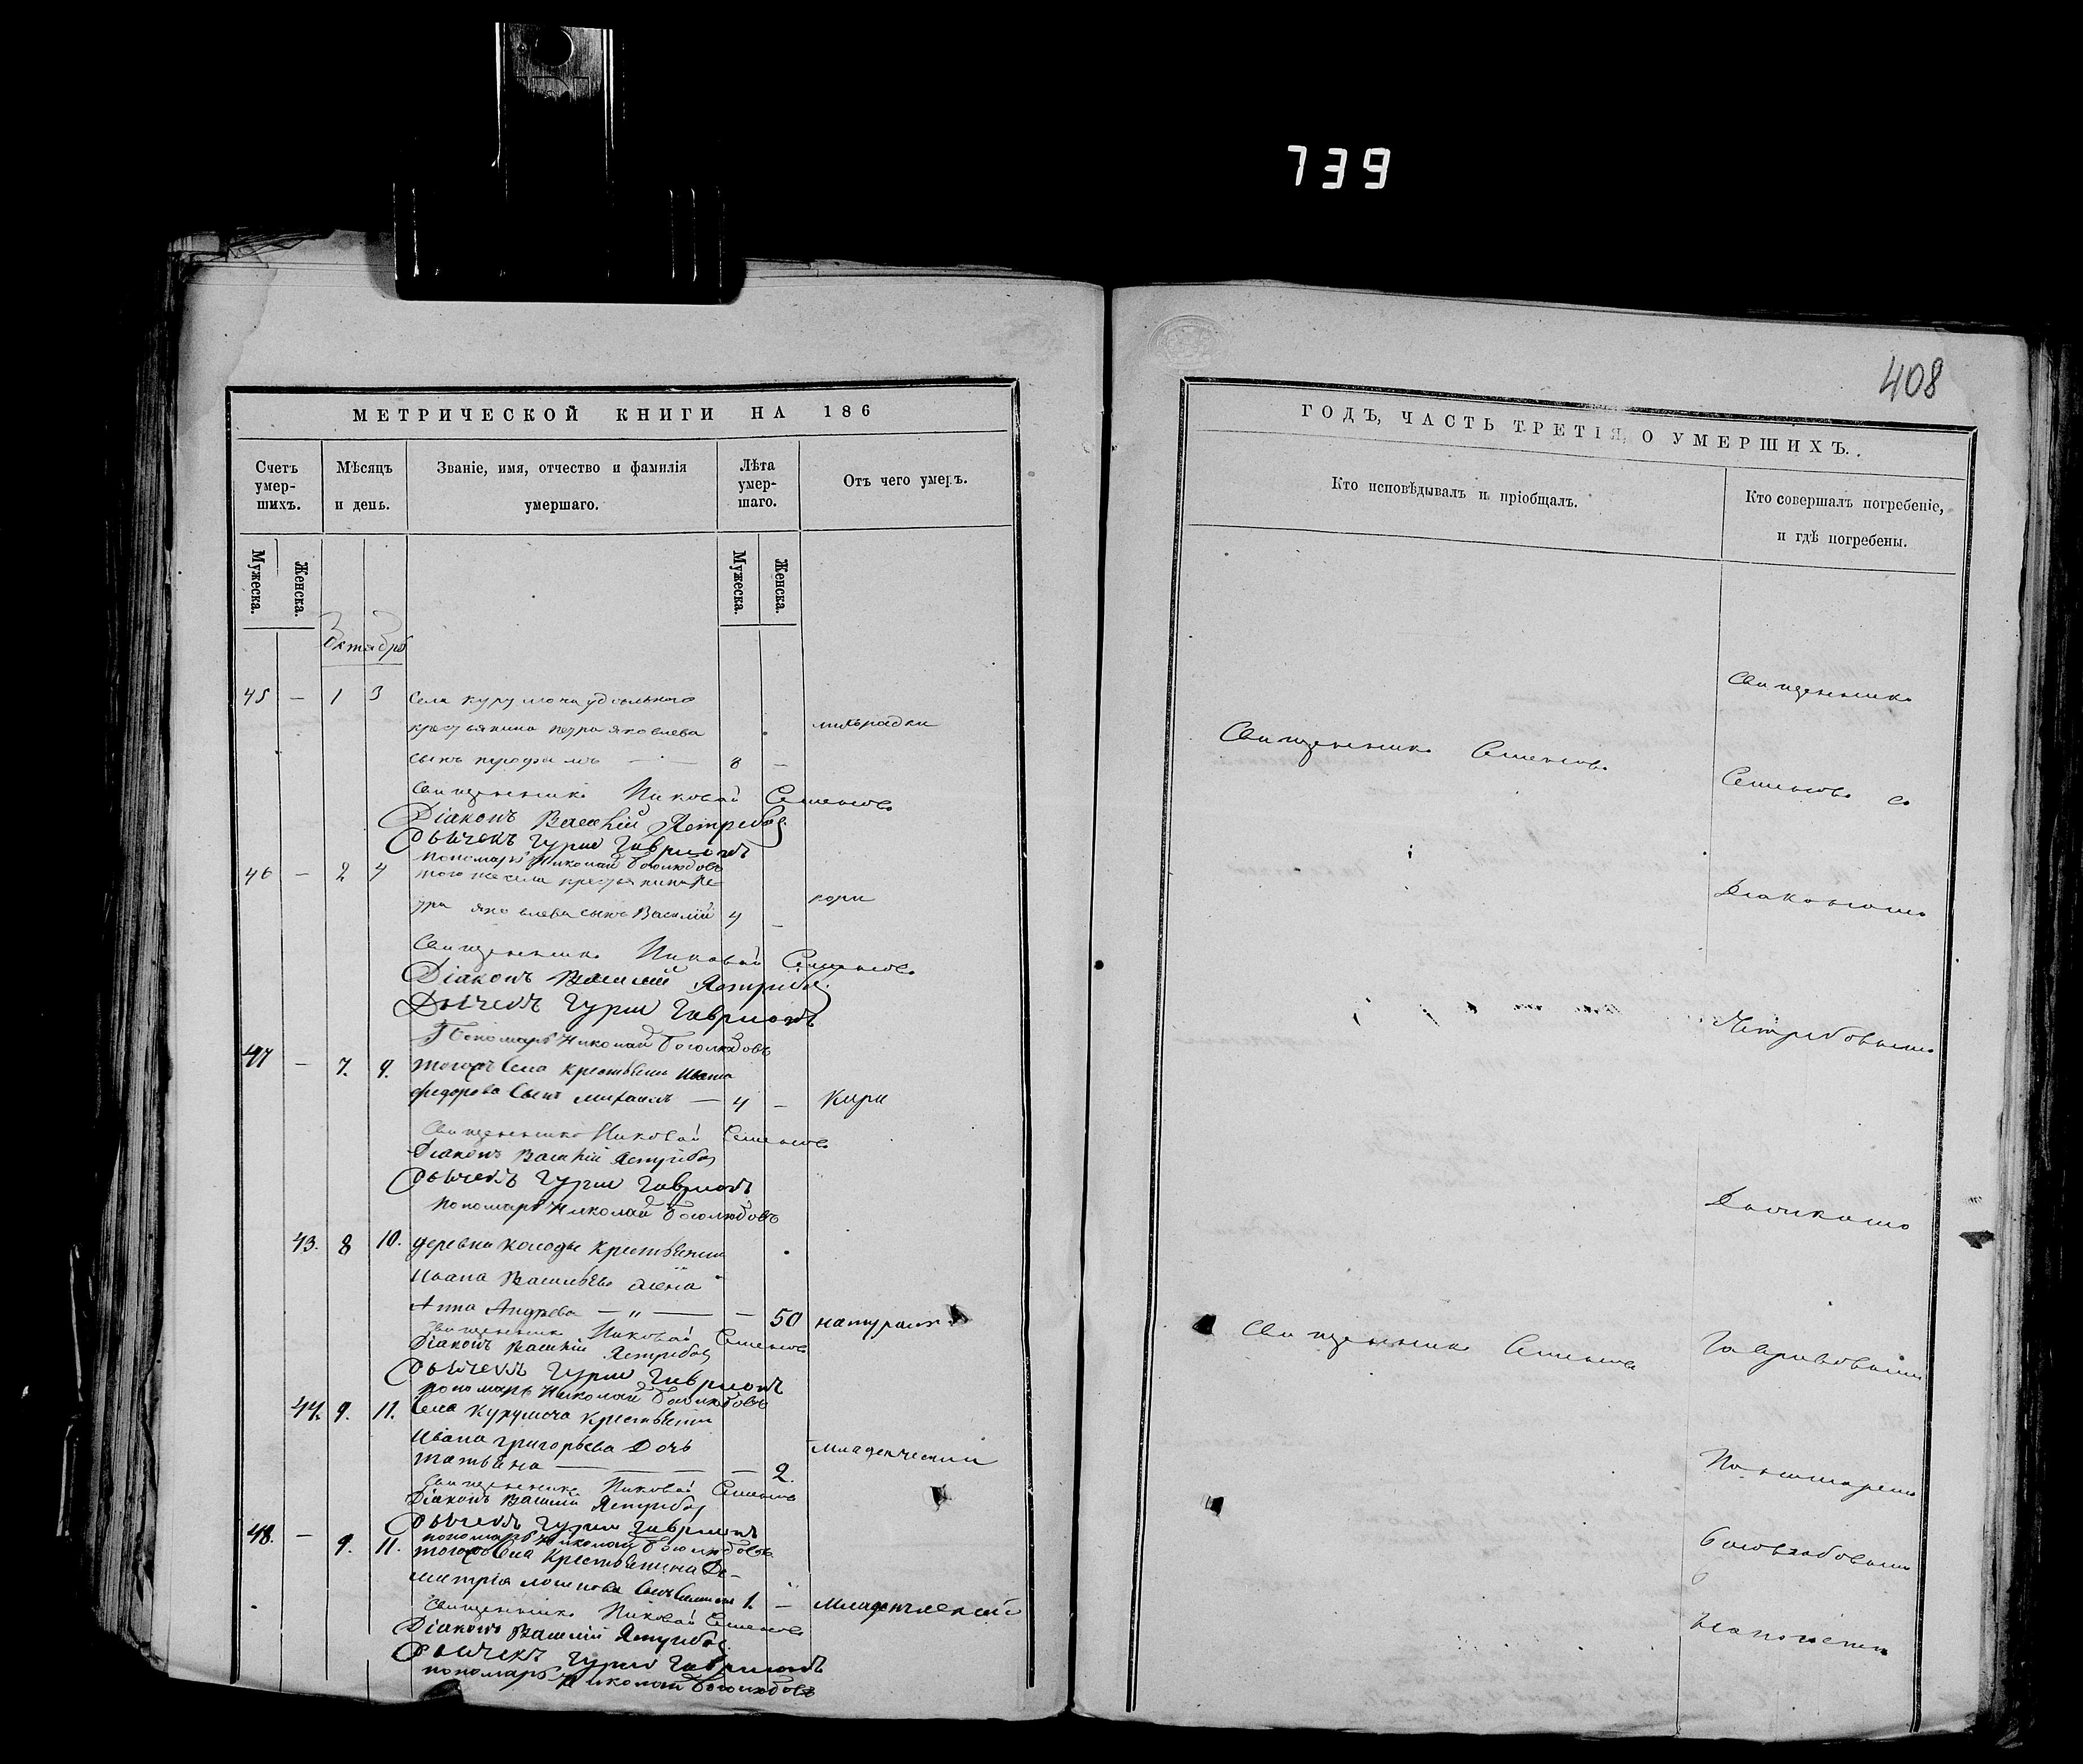 739
408
МЕТРИЧЕСКОЙ КНИГИ НА 186
Счетъ умер-шихъ.
Мѣсяцъ и день.
Званіе, имя, отчество и фамилія умершаго.
Лѣта умер-шаго.
Отъ чего умеръ.
Мужеска.
Женска.
Мужеска.
Женска.
Октябрь
45 — 1 3 Села Курумоча удѣльнаго
крестьянина Петра Яковлева
сынъ — 8 —
Священникъ Николай Семеновъ
Діаконъ Василій Ястребовъ
Дьячекъ Гурій Гавриловъ
пономарь Николай Боголюбовъ
46 — 2 4 того же села крестьянина Пе-
тра Яковлева сынъ Василій 4 — кори
Священникъ Николай Семеновъ
Діаконъ Василій Ястребовъ
Дьячекъ Гурій Гавриловъ
Пономарь Николай Боголюбовъ
47 — 7. 9. тогожъ села крестьянина Ивана
Федорова сынъ Михаилъ — 4 — Кори
Священникъ Николай Семеновъ
Діаконъ Василій Ястребовъ
Дьячекъ Гурій Гавриловъ
пономарь Николай Боголюбовъ
43. 8 10. деревни крестьянина
Ивана Васильева жена
Анна Андрева — „ — — 50
Священникъ Николай Семеновъ
Діаконъ Василій Ястребовъ
Дьячекъ Гурій Гавриловъ
пономарь Николай Боголюбовъ
44. 9. 11. Села Курумоча крестьянина
Ивана Григорьева дочь Младенческой
Татьяна — — 2.
Священникъ Николай Семеновъ
Діаконъ Василій Ястребовъ
Дьячекъ Гурій Гавриловъ
пономарь Николай Боголюбовъ
48. — 9. 11. тогожъ села крестьянина Ди-
митрія сынъ 1. — Младенческой
Священникъ Николай Семеновъ
Діаконъ Василій Ястребовъ
Дьячекъ Гурій Гавриловъ
пономарь Николай Боголюбовъ
ГОДЪ, ЧАСТЬ ТРЕТІЯ, О УМЕРШИХЪ.
Кто исповѣдывалъ и пріобщалъ.
Кто совершалъ погребеніе, и гдѣ погребены.
Священникъ
Священникъ Семеновъ
Семеновъ съ
Діакономъ
Ястребовымъ
Дьячкомъ
Священникъ Семеновъ
Гавриловымъ
Пономаремъ
Боголюбовымъ